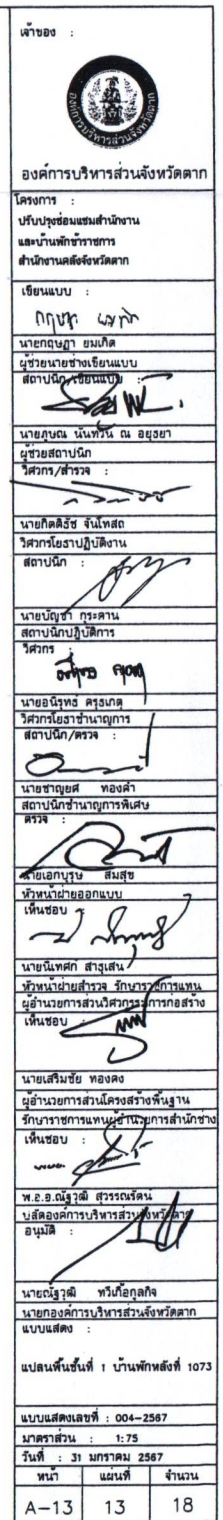 เจ้าของ :
องค์การบริหารส่วนจังหวัดตาก
องค์การบริหารส่วนจังหวัดตาก
โครงการ :
ปรับปรุงซ่อมแซมสำนักงาน
และบ้านพักข้าราชการ
สำนักงานคลังจังหวัดตาก
เขียนแบบ :
นายกฤษฎา ยมเกิด
ผู้ช่วยนายช่างเขียนแบบ
สถาปนิก/เขียนแบบ :
นายภูษณ นันทวัน ณ อยุธยา
ผู้ช่วยสถาปนิก
วิศวกร/สำรวจ :
นายกิตติธัช จันโทสถ
วิศวกรโยธาปฏิบัติงาน
สถาปนิก :
นายบัญชา กุระคาน
สถาปนิกปฏิบัติการ
วิศวกร :
นายอนิรุทธ ครุธเกตุ
วิศวกรโยธาชำนาญการ
สถาปนิก/ตรวจ :
นายชาญยศ ทองคำ
สถาปนิกชำนาญการพิเศษ
ตรวจ :
นายเอกบุรุษ สมสุข
หัวหน้าฝ่ายออกแบบ
เห็นชอบ :
นายนิเทศก์ สาธุเสน
หัวหน้าฝ่ายสำรวจ รักษาราชการแทน
ผู้อำนวยการส่วนวิศวกรรมการก่อสร้าง
เห็นชอบ :
นายเสริมชัย ทองคง
ผู้อำนวยการส่วนโครงสร้างพื้นฐาน
รักษาราชการแทนผู้อำนวยการสำนักช่าง
เห็นชอบ :
พ.อ.อ.ณัฐวุฒิ สุวรรณรัตน์
ปลัดองค์การบริหารส่วนจังหวัดตาก
อนุมัติ :
นายณัฐวุฒิ ทวีเกื้อกูลกิจ
นายกองค์การบริหารส่วนจังหวัดตาก
แบบแสดง :
แปลนพื้นชั้นที่ 1 บ้านพักหลังที่ 1073
แบบแสดงเลขที่ : 004-2567
มาตราส่วน : 1:75
วันที่ : 31 มกราคม 2567
หน้า แผ่นที่ จำนวน
A-13 13 18